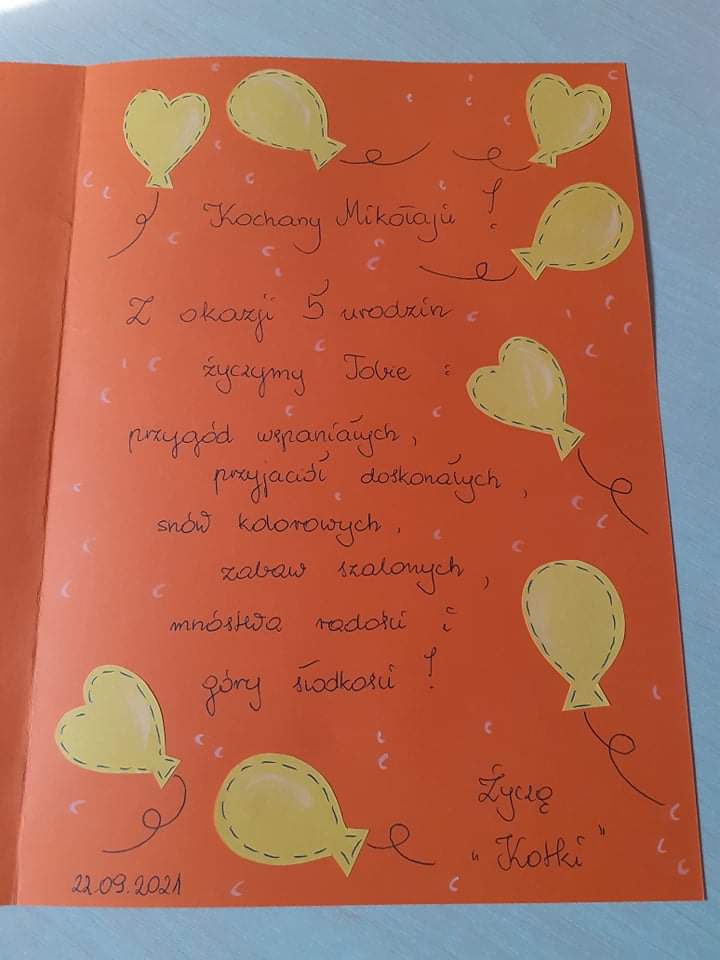 Kochany Mikołaju !
Z okazji 5 urodzin
życzymy Tobie :
przygód wspaniałych,
przyjaciół doskonałych,
snów kolorowych,
zabaw szalonych,
mnóstwa radości i
góry słodkości !
Życzą
"Kotki"
22.09.2021